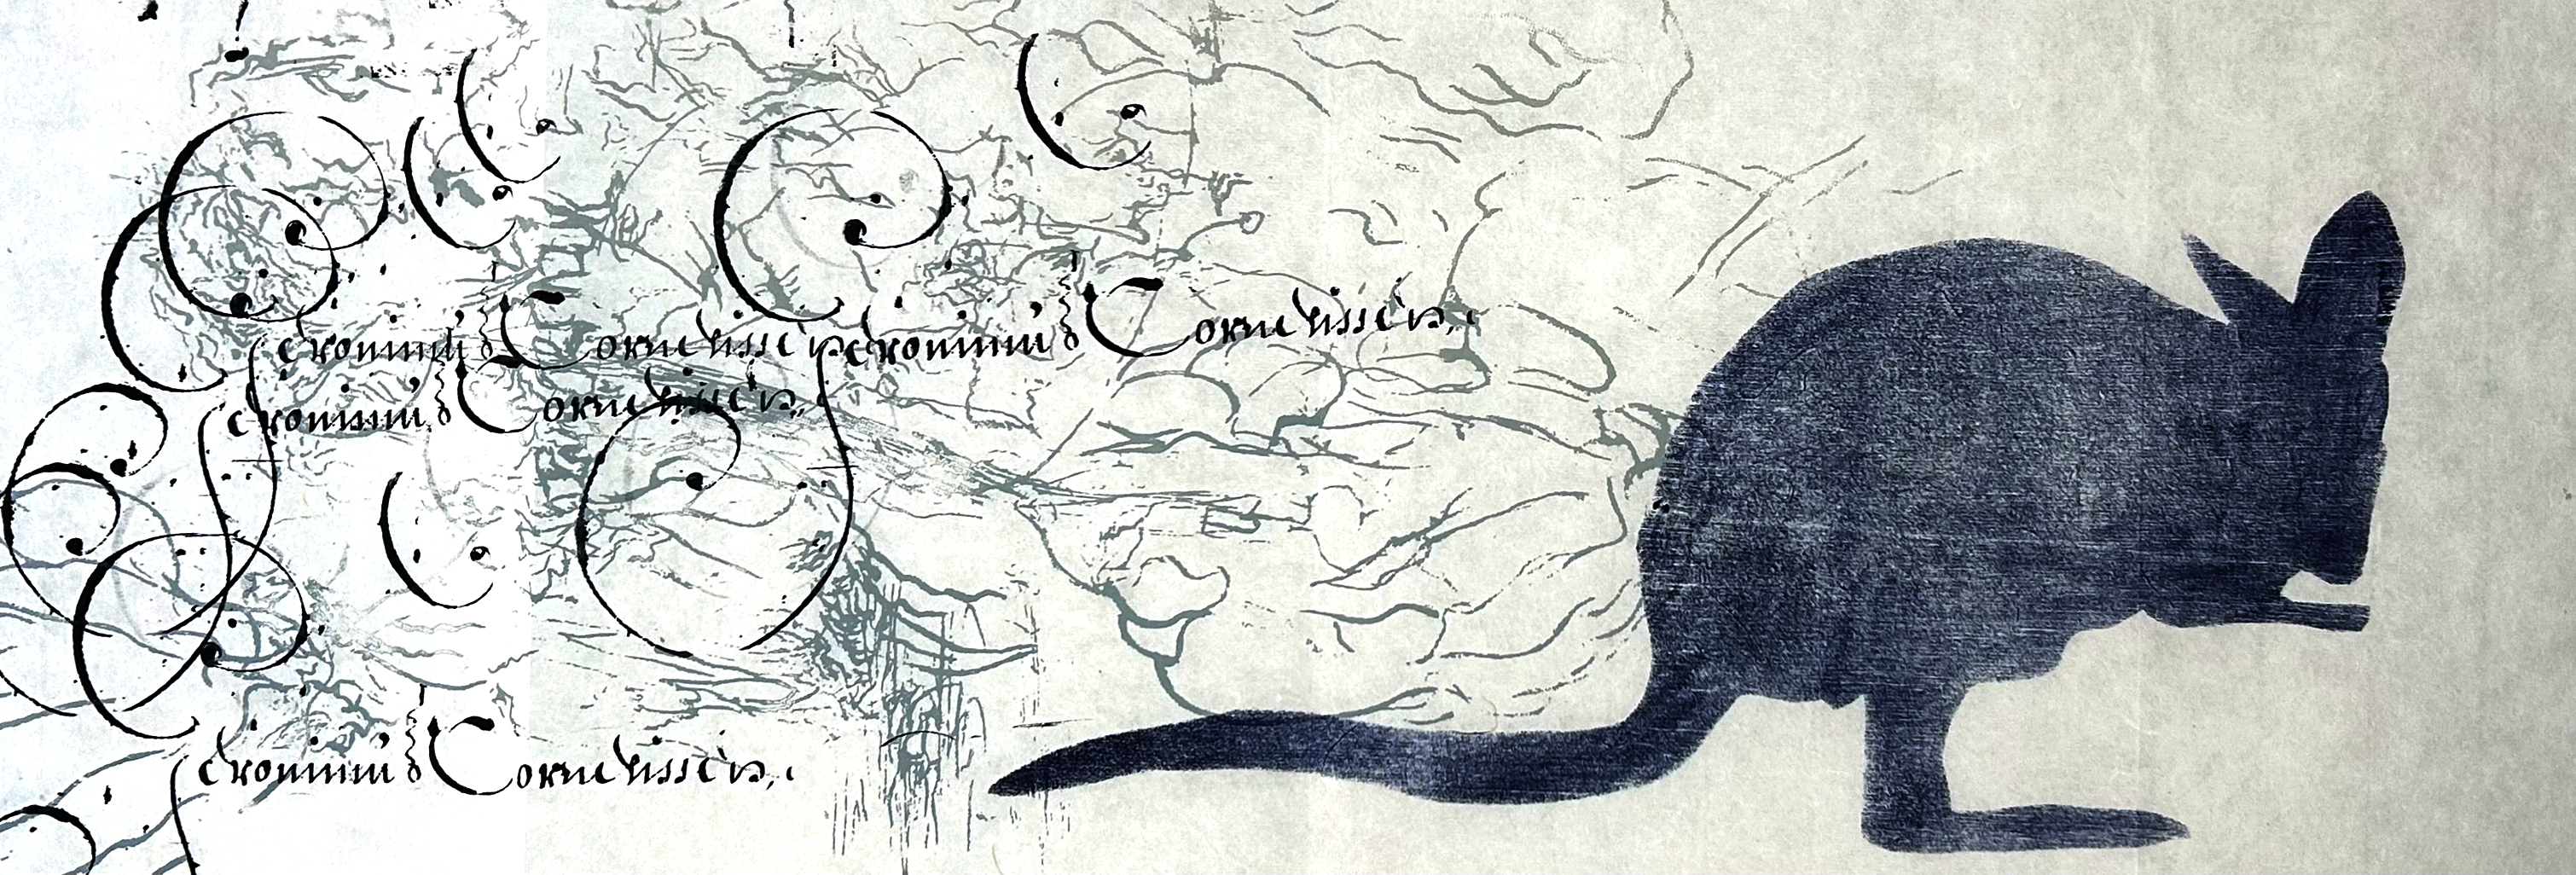 Jeronimus Cornelissen Jeronimus Cornelissen
Jeronimus Cornelissen
Jeronimus Cornelissen